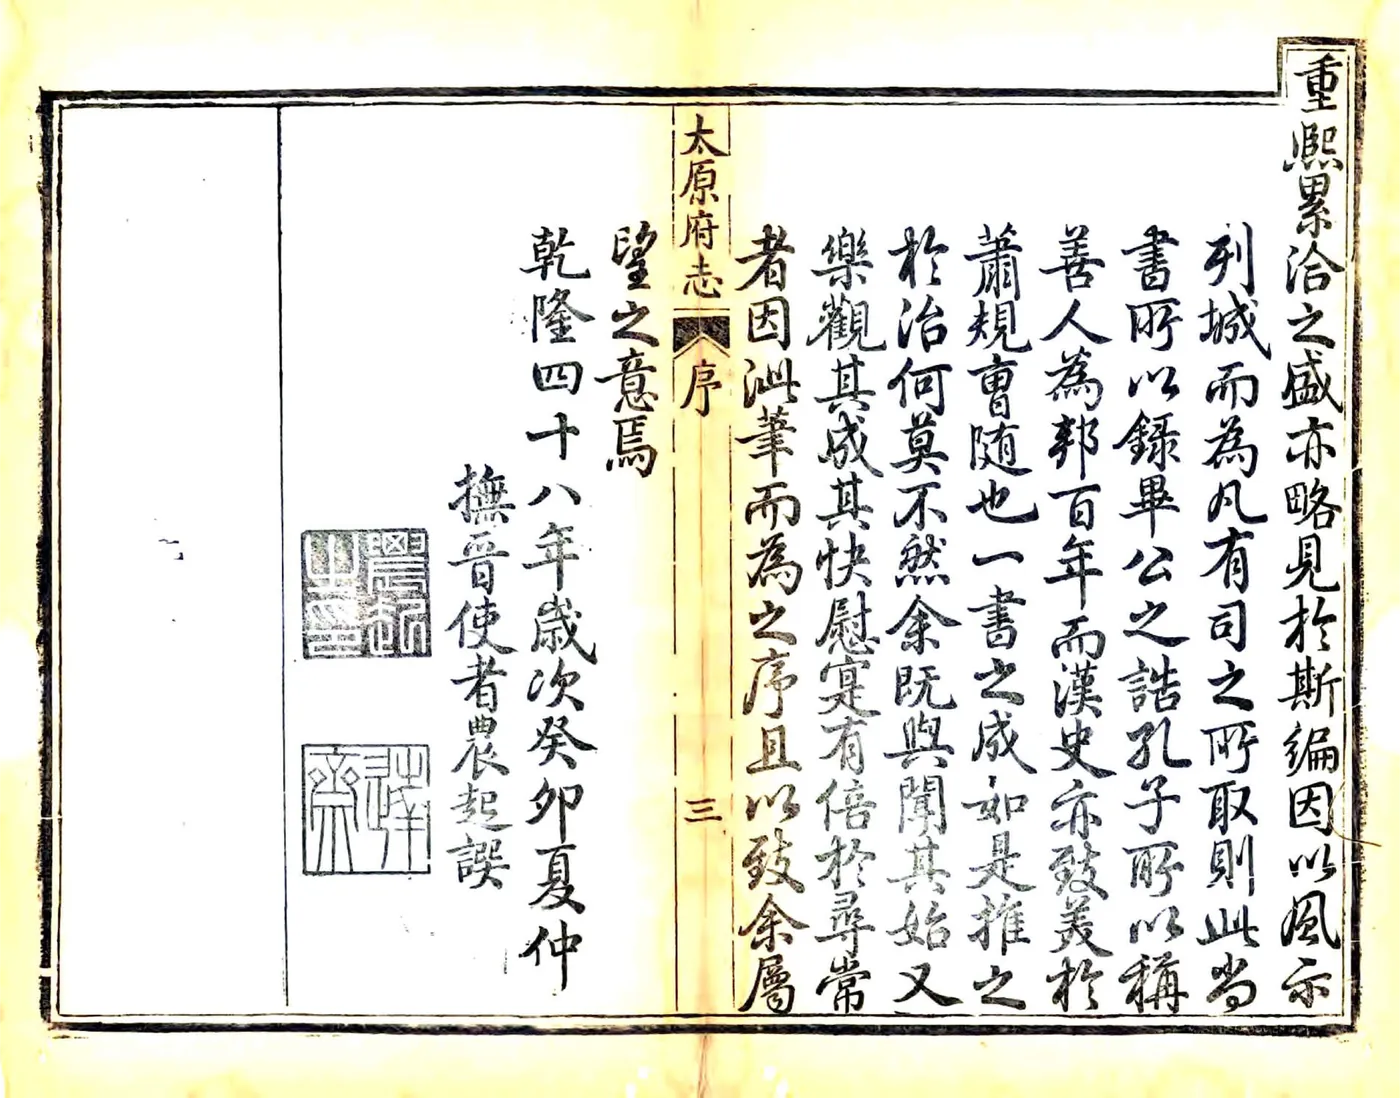 重熙累洽之盛亦略見於斯編因以風示
列城而為凡有司之所取則此尚
書所以錄畢公之誥孔子所以稱
善人為邦百年而漢史亦致美於
蕭規曹随也一書之成如是推之
於治何莫不然余既與聞其始又
樂觀其成其快慰寔有倍於尋常
者因泚筆而為之序且以致余屬
太原府志 序 三
望之意焉
乾隆四十八年歲次癸卯夏仲
撫晋使者農起譔
農起之印